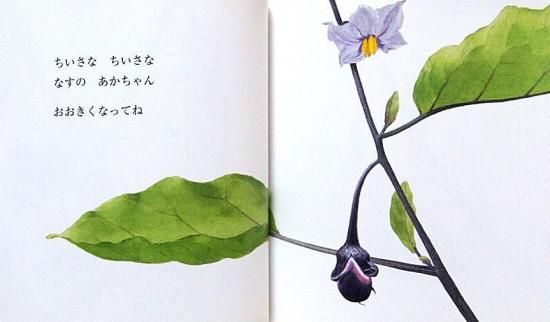 ちいさな　ちいさな
なすの　あかちゃん
おおきくなってね